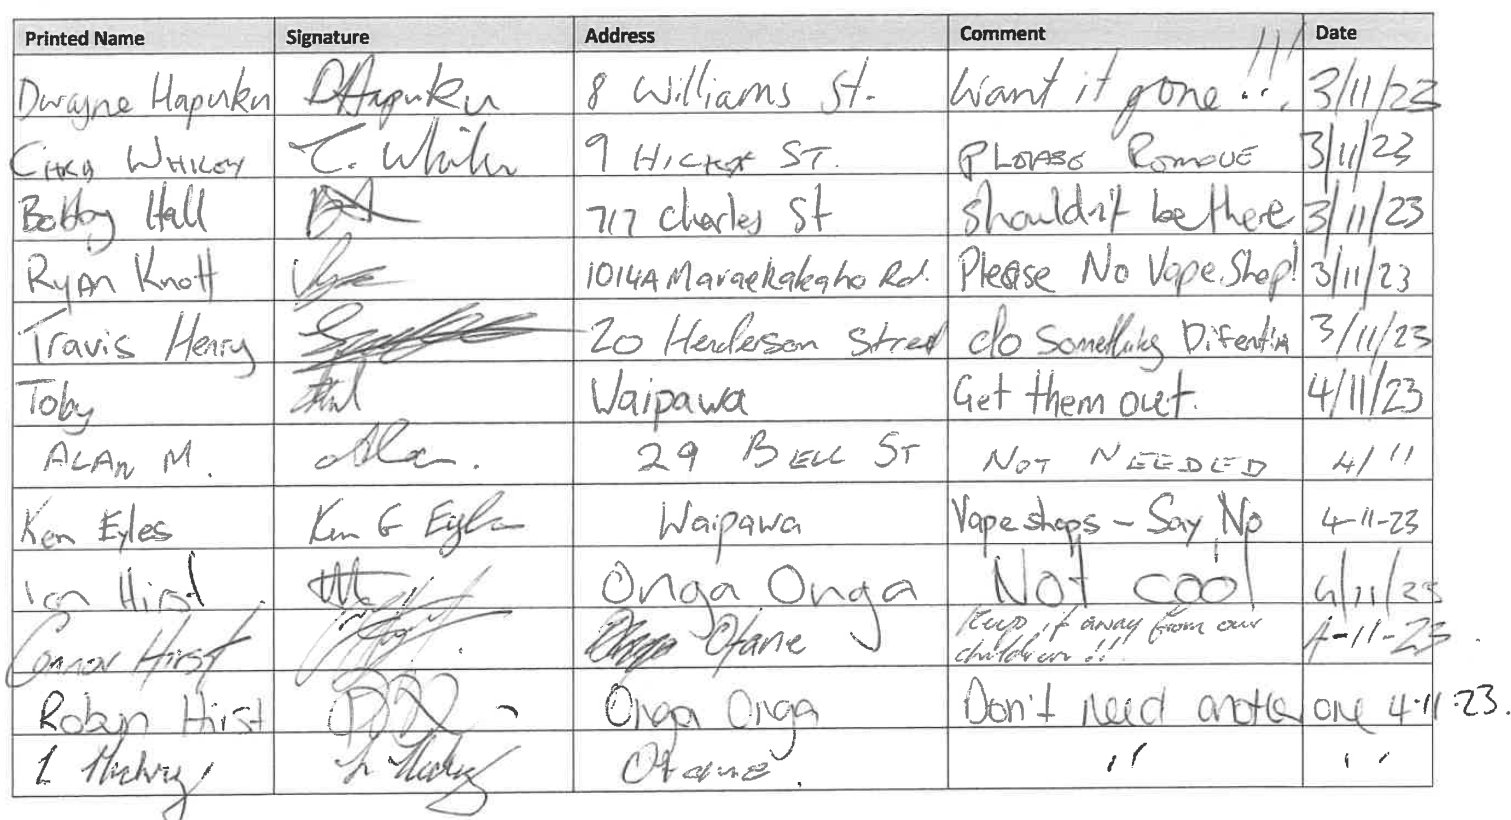 Printed Name Signature Address Comment Date
Dwayne Hapuku DHapuku 8 Williams St. Want it gone !!! 3/11/23
9 ST. PLEASE REMOVE 3/11/23
Bobby Hall 717 Charles St Shouldn't be there 3/11/23
Ryan Knott 1014A Maraekakaho Rd. Please No Vape Shop! 3/11/23
Travis Henry 20 Henderson Street do Something 3/11/23
Toby Waipawa Get them out. 4/11/23
ALAN M. Alan. 29 BELL ST NOT NEEDED 4/11
Ken Eyles Ken G Eyles Waipawa Vape shops - Say No 4-11-23
Ian Hirst Onga Onga Not cool 4/11/23
Connor Hirst Otane Keep it away from our
children !! 4-11-23
Robyn Hirst Onga Onga Don't need another one 4.11.23.
Otane " "